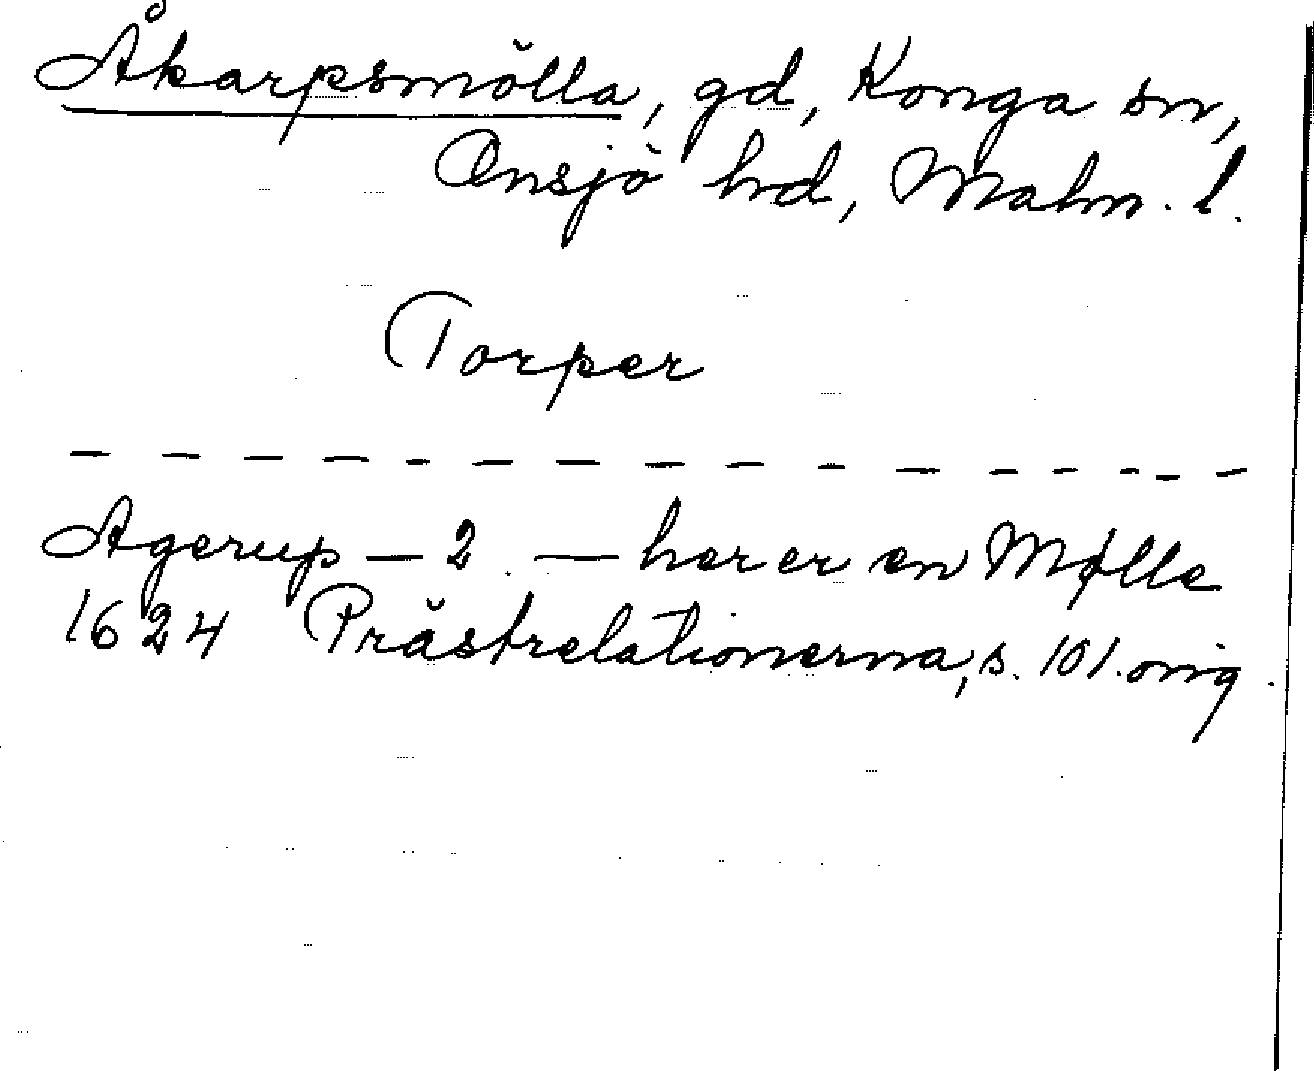 Åkarpsmölla, gd, Konga sn,
Onsjö hd, Malm. l.
Torper
Agerup — 2 — her er en Mølle
1624 Prästrelationerna, s. 101. orig.